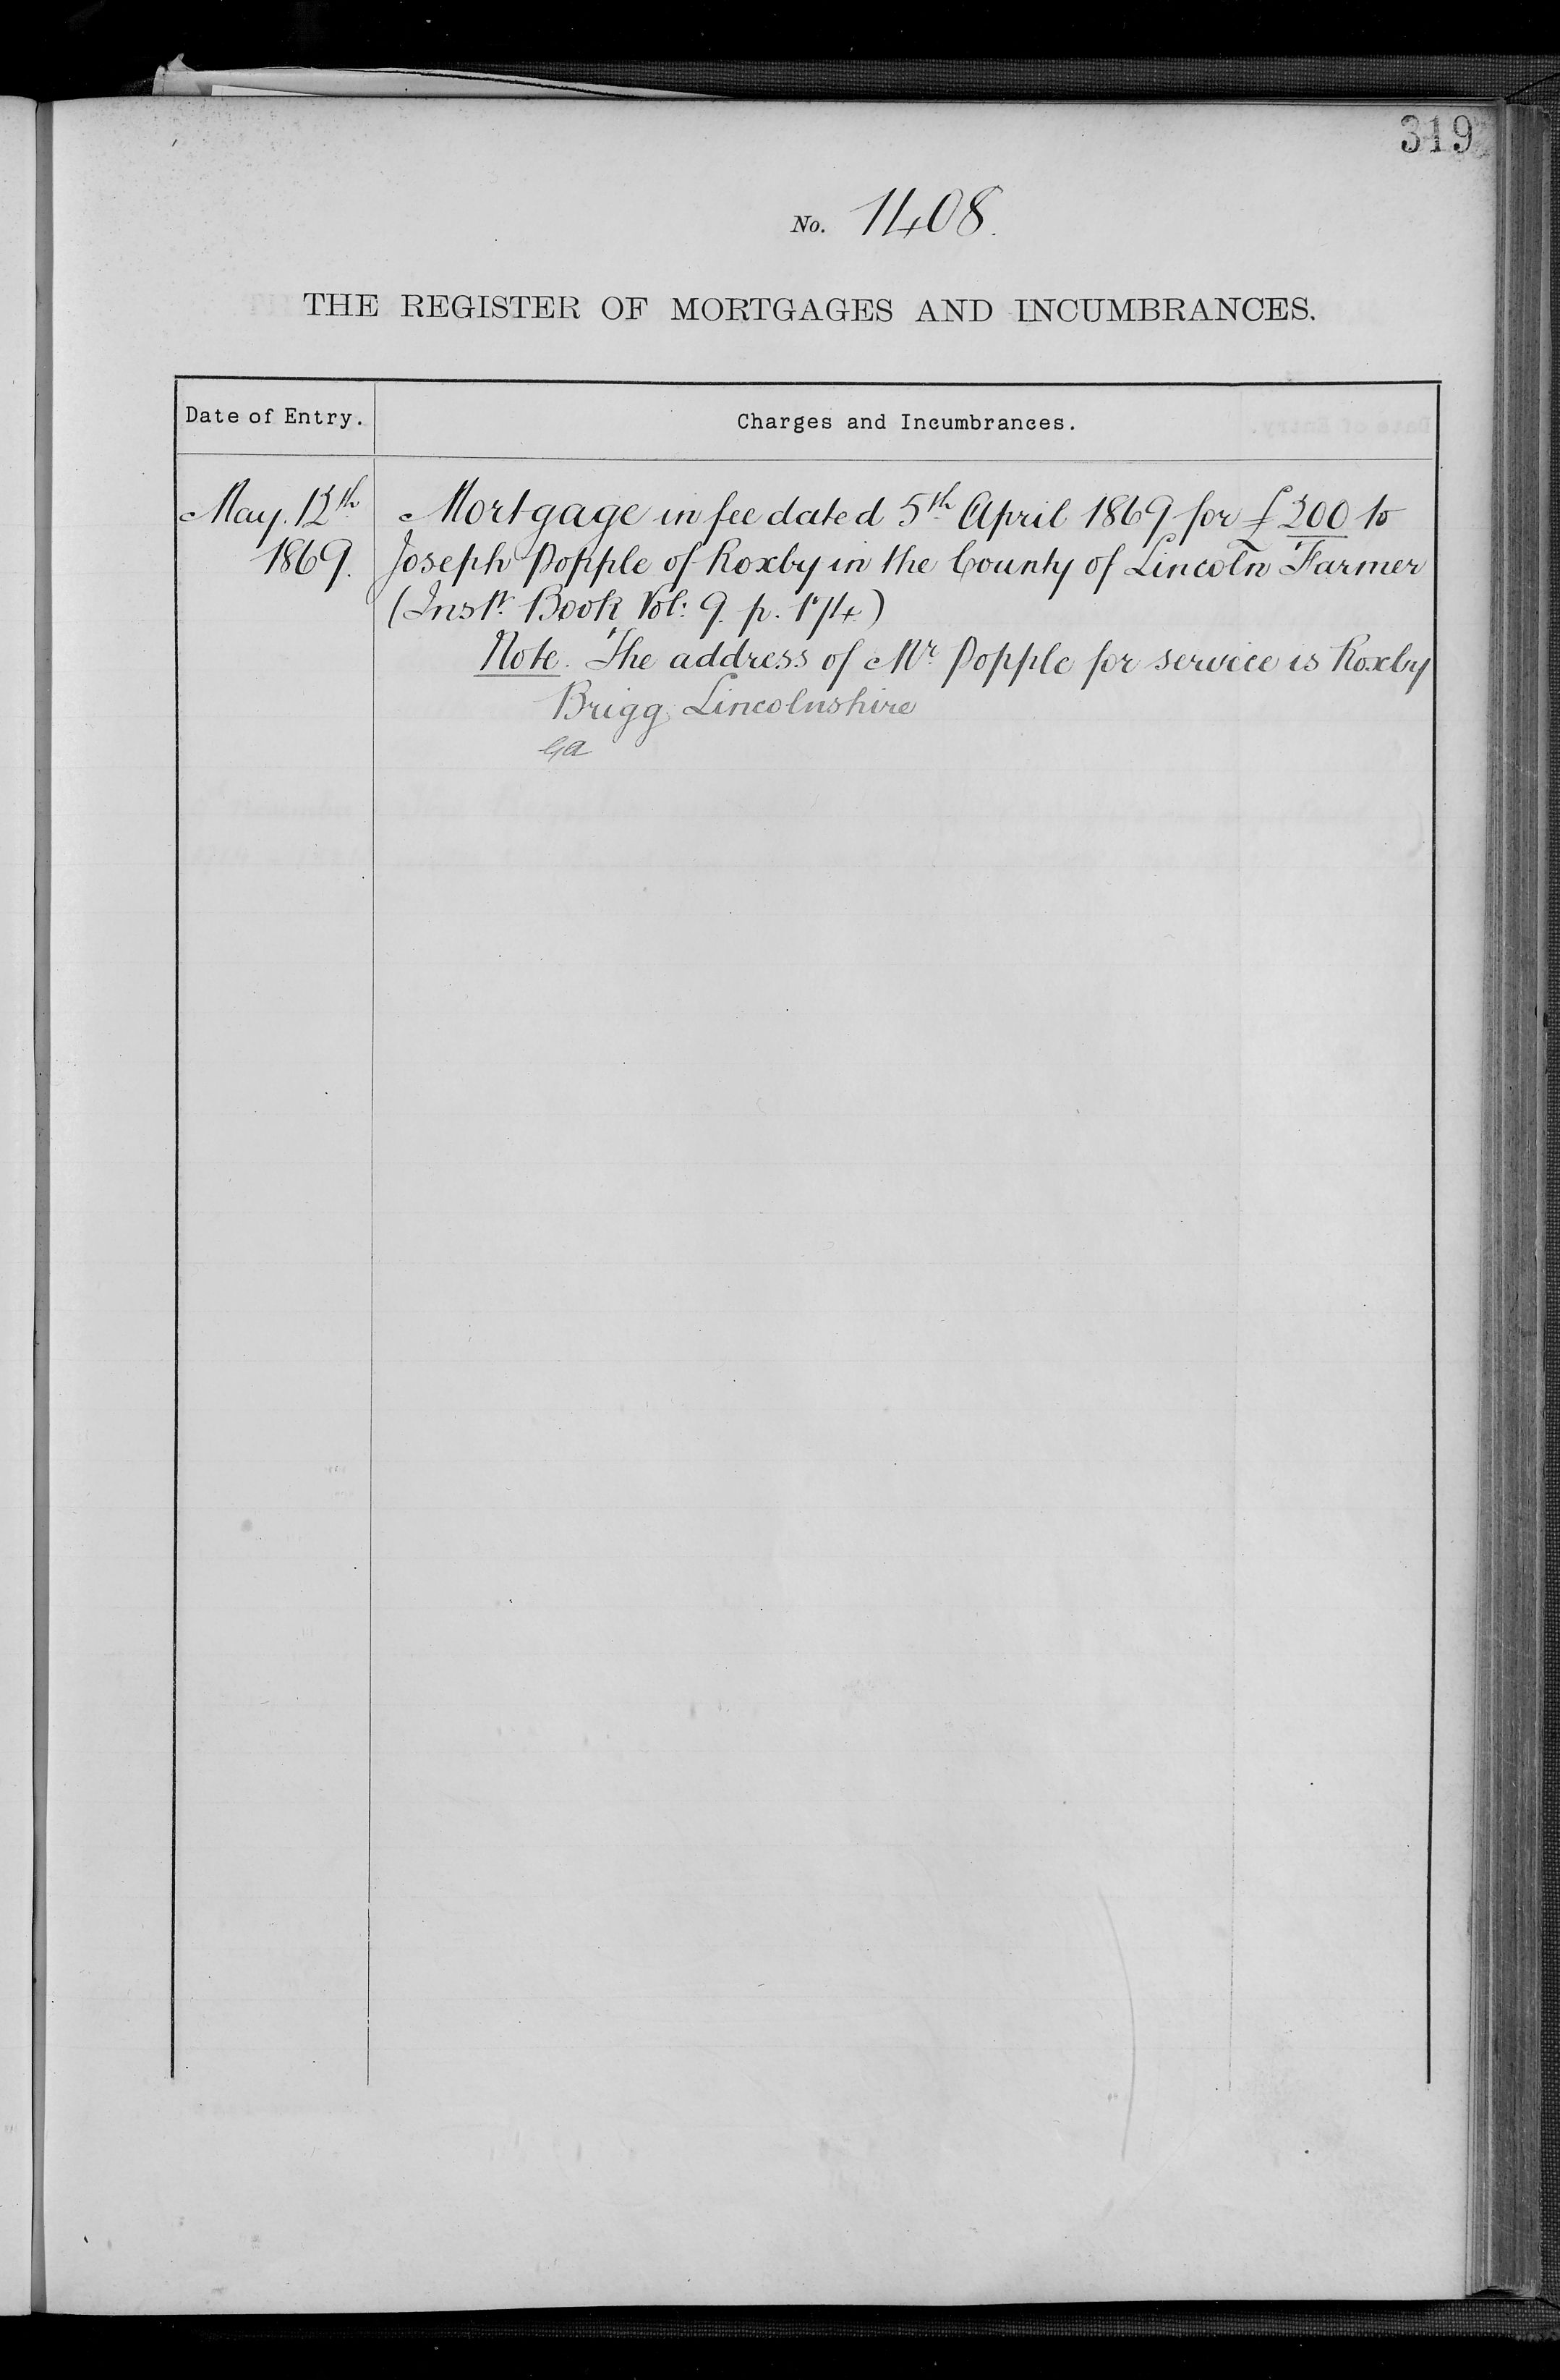 319
No. 1408.
THE REGISTER OF MORTGAGES AND INCUMBRANCES.
Date of Entry.
Charges and Incumbrances.
May. 12th
1869.
Mortgage in fee dated 5th April 1869 for £200 to
Joseph Popple of Roxby in the County of Lincoln Farmer
(Instt. Book Vol: 9. p. 174)
Note. The address of Mr Popple for service is Roxby
Brigg Lincolnshire